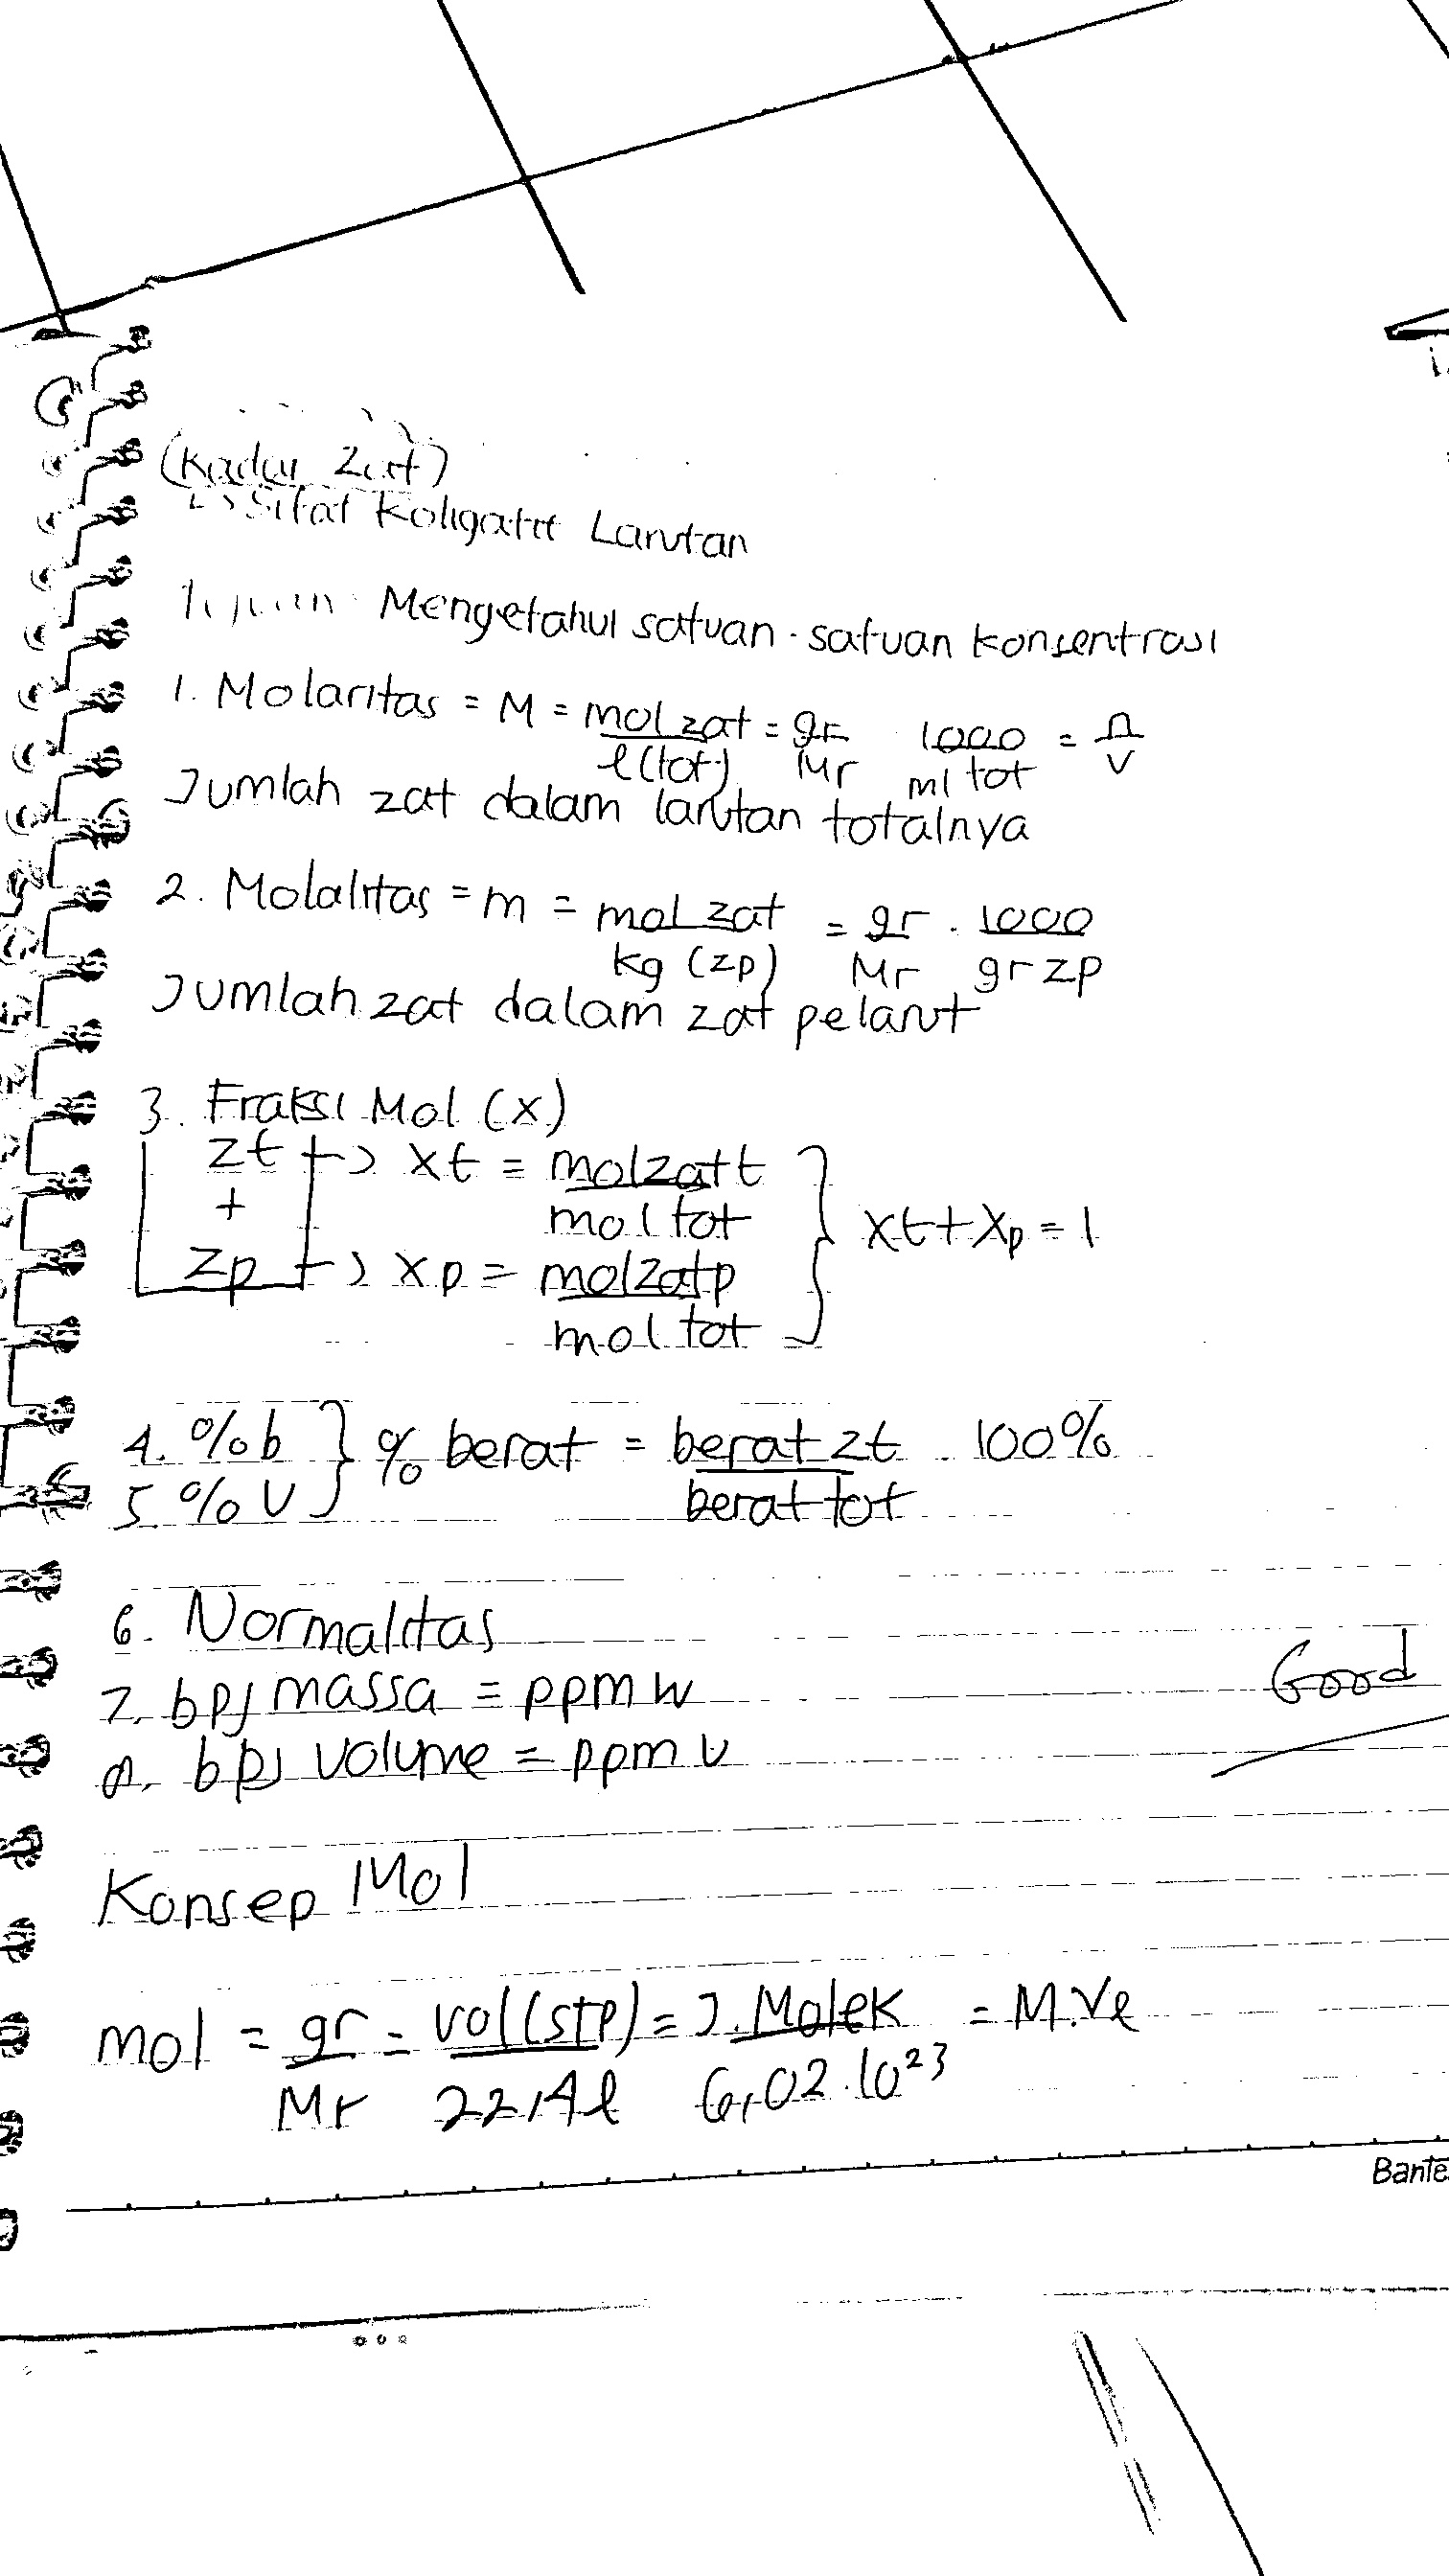 (Kadar Zat)
Sifat Koligatif Larutan
Mengetahui satuan-satuan konsentrasi
1. Molaritas = M = mol zat / l (tot) = gr / Mr 1000 / ml tot = n / v
Jumlah zat dalam larutan totalnya
2. Molalitas = m = mol zat / kg (zp) = gr / Mr . 1000 / gr zp
Jumlah zat dalam zat pelarut
3. Fraksi Mol (x)
zt → xt = mol zat t / mol tot
+
zp → xp = mol zat p / mol tot
} xt + xp = 1
4. % b
5. % v
} % berat = berat zt / berat tot 100%
6. Normalitas
7. bpj massa = ppm w
8. bpj volume = ppm v
Good
Konsep Mol
mol = gr / Mr = vol (STP) / 22,4 l = J. Molek / 6,02 . 10²³ = M.Vl
Bante